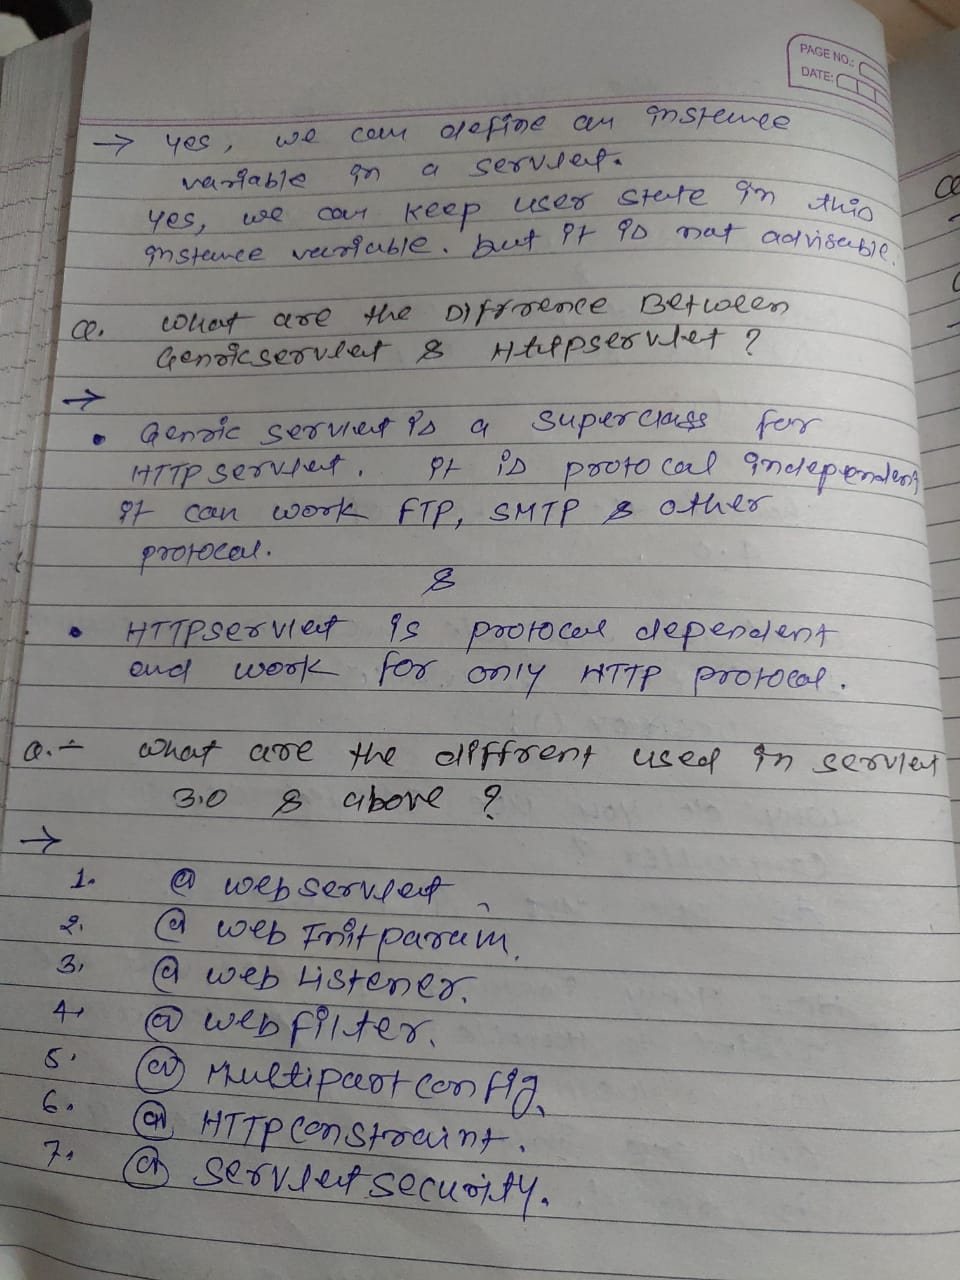 PAGE NO.:
DATE:
→ yes, we can define an instance
variable in a servlet.
yes, we can keep user state in this
instance variable. but it is not advisable.
Q. What are the Diffrence Between
Genricservlet & Httpservlet ?
→
• Genric servlet is a superclass for
HTTPservlet. It is protocal independent
It can work FTP, SMTP & other
protocal.
&
• HTTPservlet is protocal dependent
and work for only HTTP protocal.
Q.- What are the diffrent used in servlet
3.0 & above ?
→
1. @ webservlet
2. @ web Initparam.
3. @ web Listener.
4. @ webfilter.
5. @ Multipartconfig.
6. @ HTTPconstraint.
7. @ servletsecurity.